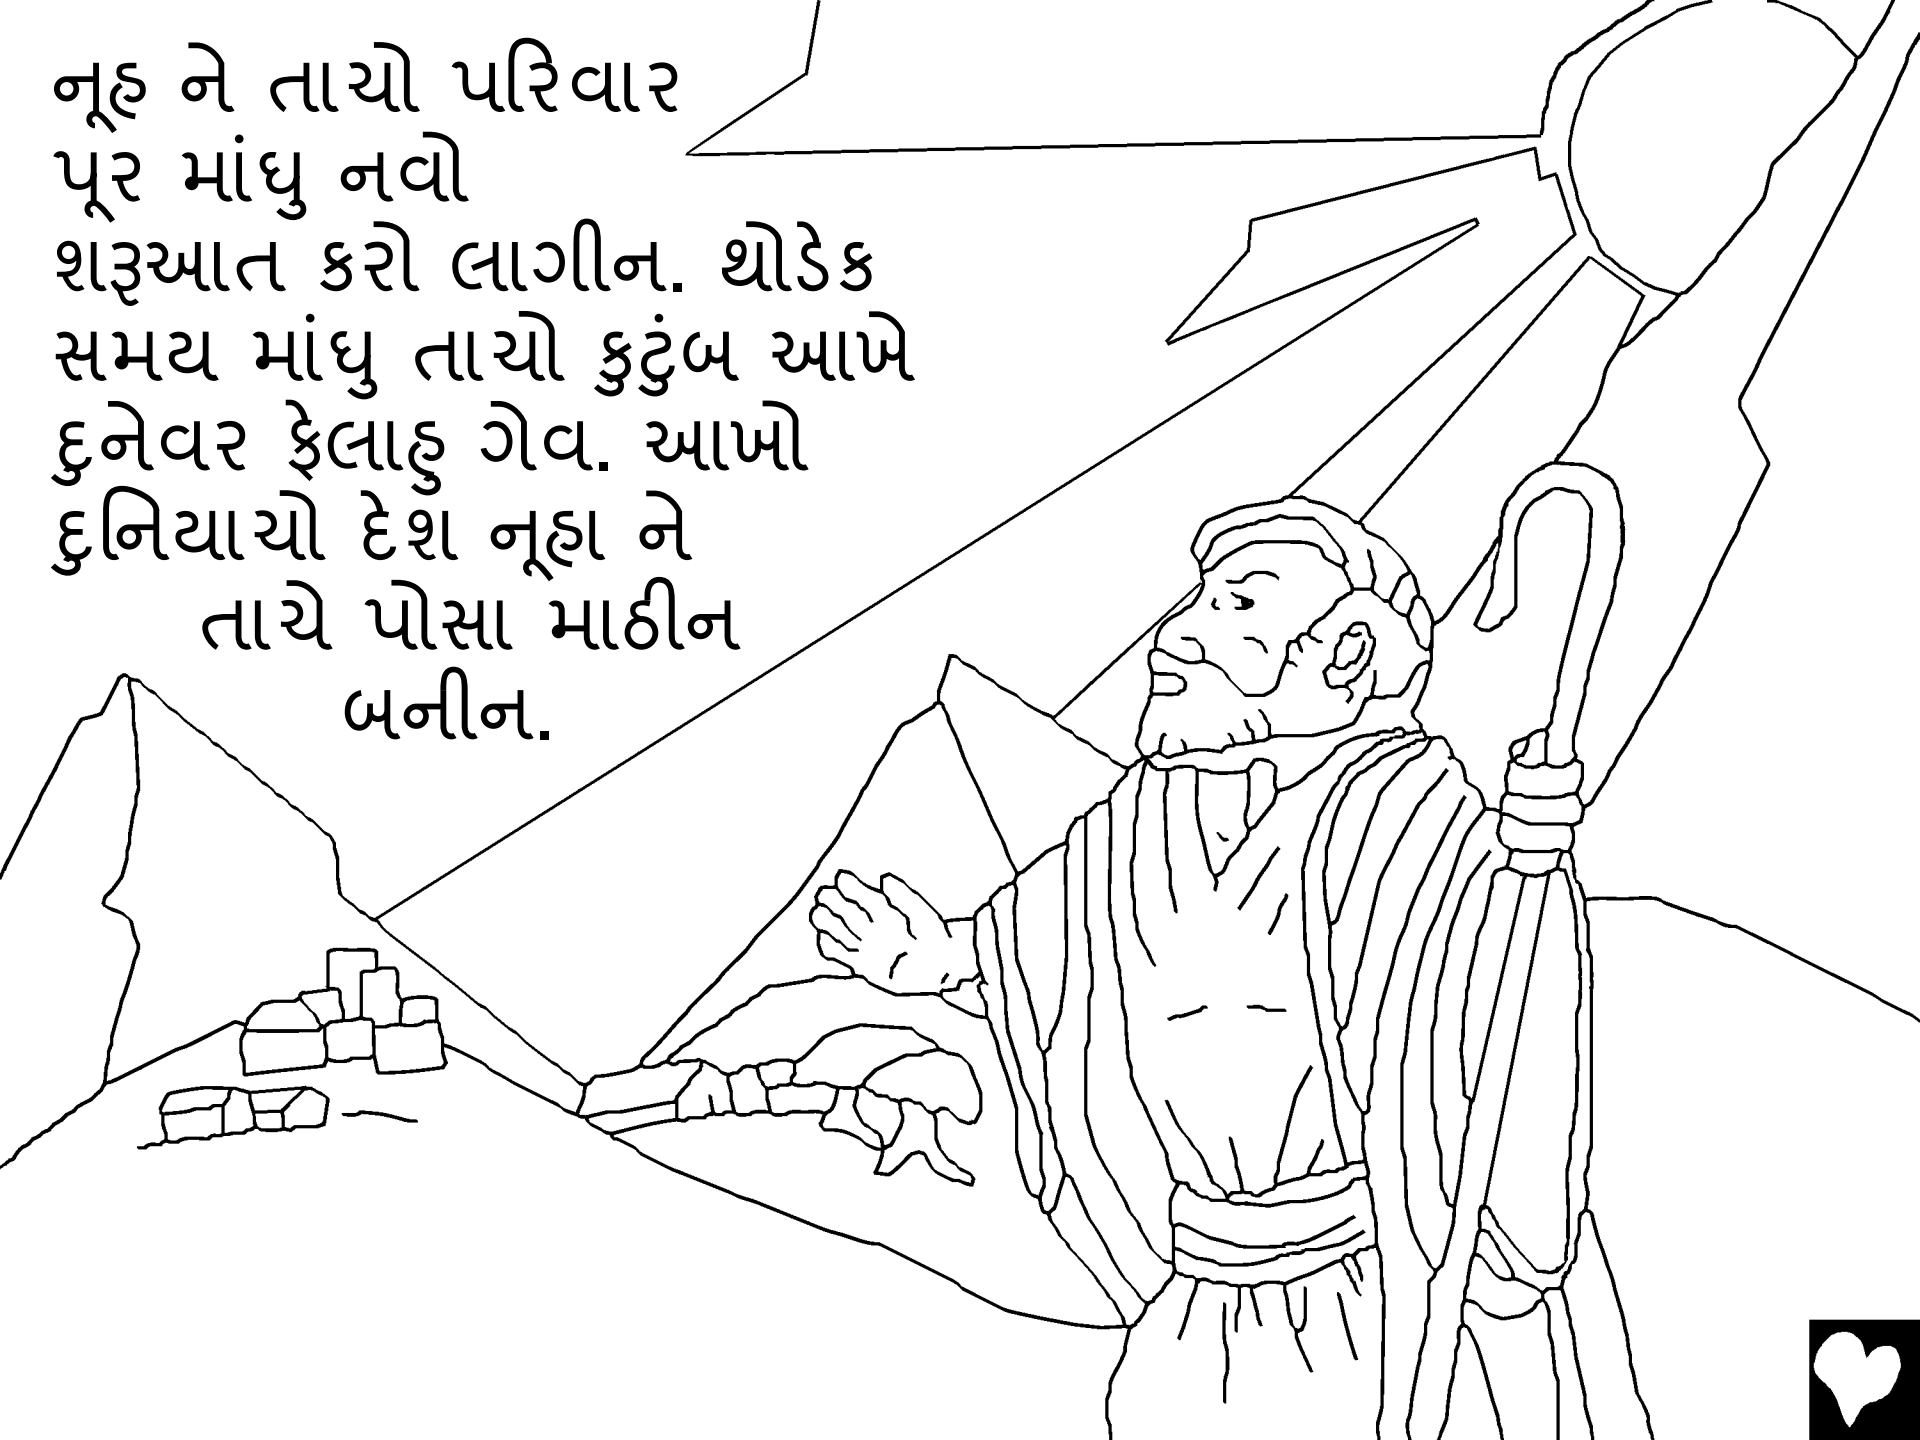 નૂહ ને તાચો પરિવાર
પૂર માંઘુ નવો
શરૂઆત કરો લાગીન. થોડેક
સમય માંઘુ તાચો કુટુંબ આખે
દુનેવર ફેલાહુ ગેવ. આખો
દુનિયાચો દેશ નૂહા ને
તાચે પોસા માઠીન
બનીન.